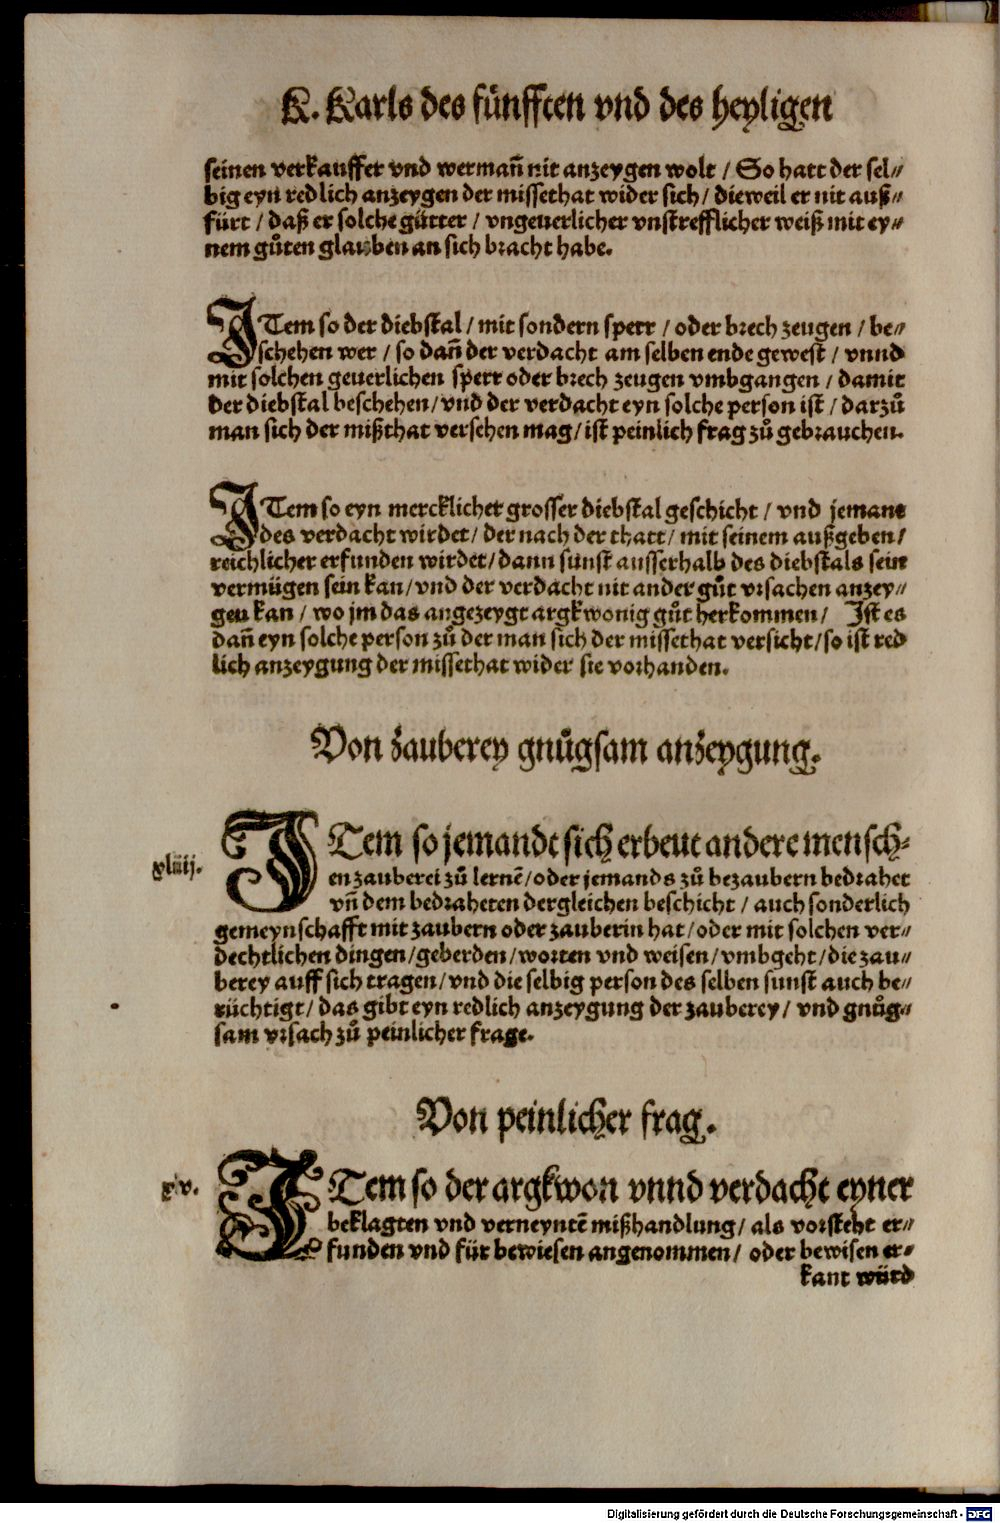 K. Karls des fünfften vnd des heyligen
seinen verkauffer vnd wermañ nit anzeygen wolt / So hatt der sel⸗
big eyn redlich anzeygen der missethat wider sich / dieweil er nit auß⸗
fürt / daß er solche gütter / vngeuerlicher vnstrefflicher weiß mit ey⸗
nem gůten glauben an sich bracht habe.
ITem so der diebstal / mit sondern sperr / oder brech zeugen / be⸗
schehen wer / so dañ der verdacht am selben ende gewest / vnnd
mit solchen geuerlichen sperr oder brech zeugen vmbgangen / damit
der diebstal beschehen / vnd der verdacht eyn solche person ist / darzů
man sich der mißthat versehen mag / ist peinlich frag zů gebrauchen.
ITem so eyn mercklicher grosser diebstal geschicht / vnd jemant
des verdacht wirdet / der nach der thatt / mit seinem außgeben /
reichlicher erfunden wirdet / dann sunst ausserhalb des diebstals sein
vermügen sein kan / vnd der verdacht nit ander gůt vrsachen anzey⸗
gen kan / wo jm das angezeygt argkwonig gůt herkommen / Ist es
dañ eyn solche person zů der man sich der missethat versicht / so ist red
lich anzeygung der missethat wider sie vorhanden.
Von zauberey gnůgsam anzeygung.
xliiij.
ITem so jemandt sich erbeut andere mensch⸗
en zauberei zů lernẽ / oder jemands zů bezaubern bedrahet
vñ dem bedraheten dergleichen beschicht / auch sonderlich
gemeynschafft mit zaubern oder zauberin hat / oder mit solchen ver⸗
dechtlichen dingen / geberden / worten vnd weisen / vmbgeht / die zau⸗
berey auff sich tragen / vnd die selbig person des selben sunst auch be⸗
rüchtigt / das gibt eyn redlich anzeygung der zauberey / vnd gnůg⸗
sam vrsach zů peinlicher frage.
Von peinlicher frag.
xlv.
ITem so der argkwon vnnd verdacht eyner
beklagten vnd verneyntẽ mißhandlung / als vorsteht er⸗
funden vnd für bewiesen angenommen / oder bewisen er⸗
kant würd
Digitalisierung gefördert durch die Deutsche Forschungsgemeinschaft - DFG